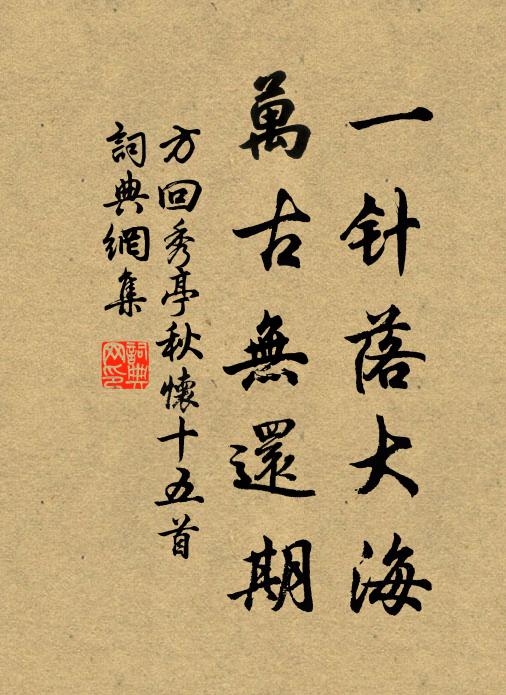 一针落大海
萬古無還期
方回秀亭秋懷十五首
詞典網集
詞典網印